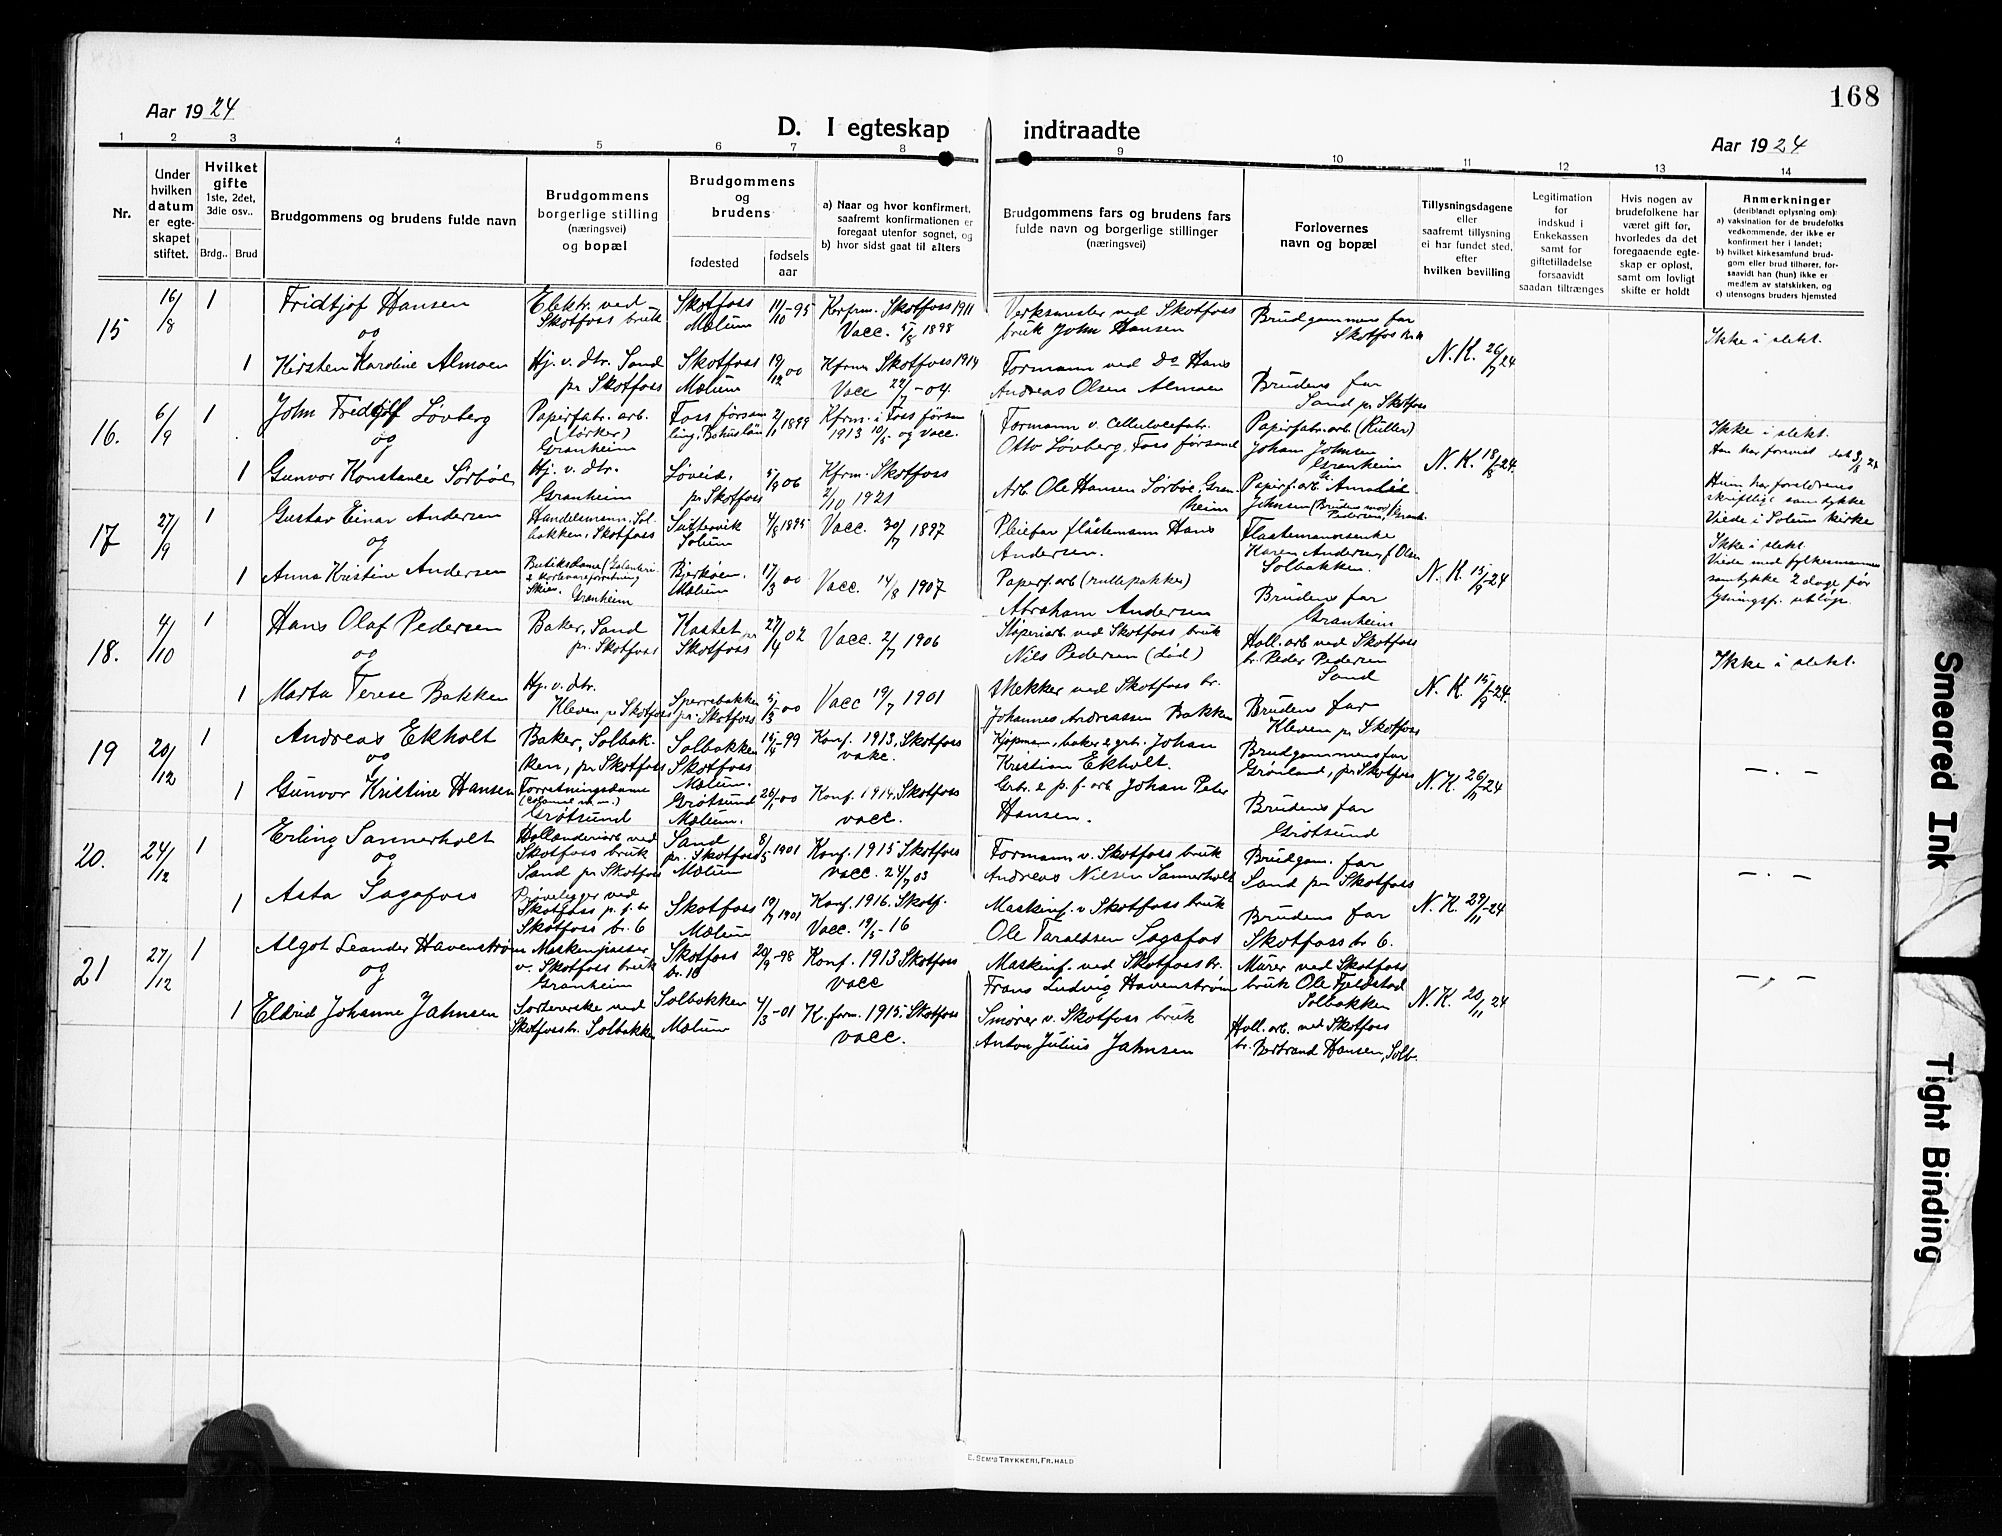 168
Aar 1924
D. I egteskap indtraadte
Aar 1924
1 2 3 4 5 6 7 8 9 10 11 12 13 14
Nr.
Under hvilken datum er egteskapet stiftet.
Hvilket gifte 1ste, 2det, 3die osv..
Brdg.. Brud
Brudgommens og brudens fulde navn
Brudgommens borgerlige stilling (næringsvei) og bopæl
Brudgommens og brudens
fødested
fødsels aar
a) Naar og hvor konfirmert, saafremt konfirmationen er foregaat utenfor sognet, og
b) hvor sidst gaat til alters
Brudgommens fars og brudens fars fulde navn og borgerlige stillinger (næringsvei)
Forlovernes navn og bopæl
Tillysningsdagene eller saafremt tillysning ei har fundet sted, efter hvilken bevilling
Legitimation for indskud i Enkekassen samt for giftetilladelse forsaavidt saadan tiltrænges
Hvis nogen av brudefolkene har været gift før, hvorledes da det foregaaende egteskap er opløst, samt om lovligt skifte er holdt
Anmerkninger (deriblandt oplysning om):
a) vaksination for de brudefolks vedkommende, der ikke er konfirmert her i landet;
b) hvilket kirkesamfund brudgom eller brud tilhører, forsaavidt han (hun) ikke er medlem av statskirken, og
c) utensogns bruders hjemsted
15 16/8 1
Fridtjof Hansen
og
Elektr. ved Skotfoss bruk
Skotfoss Mælum
11/10-95
Konfrm. Skotfoss 1911
Vacc. 5/8 1898
Verksmester ved Skotfoss bruk John Hansen
Brudgommens far
Skotfos bruk
N. K. 26/7 24
Ikke i slekt.
1 Kirsten Kardine Almoen
Hj. v. dtr. Sand pr Skotfoss
Skotfoss Mælum
19/12 00
Kfrm Skotfoss 1914
Vacc 22/7-04.
Formann ved Do Hans Andreas Olsen Almoen
Brudens far
Sand pr Skotfoss
16. 6/9 1
John Fredtjof Løvberg
og
Papirfabr. arb. (tørker) Granheim
Foss försam ling, Bohuslän
2/1 1899
Kfrm. i Foss försam 1913 10/5 og vacc.
Formann v. Cellulosefabr.
Otto Løvberg, Foss församl
Papirfabr. arb (Ruller)
Johan Johnsen
Granheim
N. K. 18/8-24.
Ikke i slekt.
1 Gunvor Konstance Sørbøe
Hj. v. dtr. Granheim
Løveid, pr Skotfoss
5/9 06
Kfrm. Skotfoss 2/10 1921
Arb. Ole Hansen Sørbøe, Granheim
Papirf. arb Amalie
Johnsen (Brudens mor)
Hun har forældrenes skriftlige samtykke
Viede i Solum kirke
17 27/9 1
Gustav Einar Andersen
og
Handelsmann. Solbakken, Skotfoss
Solum
4/8 1895
Vacc. 30/7 1897
Pleiefar flåtemann Hans Andersen.
Flaatemannsenke
Karen Andersen f Olsen
Solbakken.
N. K. 15/9-24
Ikke i slekt.
Viede med fylkesmannens samtykke 2 dage før lysningsfr. utløp.
1 Anna Kristine Andersen
Skien. Granheim
Bjerkøen. Mælum
17/3 00
Vacc. 14/8 1907
Papirf. arb (rullepakker)
Abraham Andersen
Brudens far
Granheim
18. 4/10 1
Hans Olaf Pedersen
og
Baker, Sand pr. Skotfoss
Kastet pr Skotfoss
27/4 02
Vacc. 2/7 1906
Sliperiarb. ved Skotfoss bruk
Nils Pedersen (død)
Holl. arb ved Skotfoss
br. Peder Pedersen
Sand
N. K. 15/9-24.
Ikke i slekt.
1 Marta Terese Bakken
Hj. v. dtr. Kleven pr Skotfoss
Sperrebakken pr. Skotfoss
5/13-00
Vacc 19/7 1901
Trekker ved Skotfoss br.
Johannes Andreassen Bakken
Brudens far
Kleven pr Skotfoss
19 20/12 1
Andreas Ekholt
og
Baker, Solbakken, pr Skotfoss
Solbakken Skotfoss Mælum.
15/4-99
Konf. 1913, Skotfoss
vakc.
Kjøpmann, baker & grb. Johan Kristian Ekholt.
Brudgommens far
Grønland, pr Skotfoss
N. K. 26/11 24
— . —
1 Gunvor Kristine Hansen
Forretningsdame Grøtsund
Grøtsund Mælum.
26/1-00
Konf. 1914. Skotfoss
vacc.
Grb. & p. f. arb Johan Peter Hansen.
Brudens far
Grøtsund
20. 24/12 1
Erling Sannerholt
og
Hollenderiarb ved Skotfoss bruk Sand pr Skotfoss
Sand pr. Skotfoss Mælum
8/5 1901
Konf. 1915 Skotfoss
vacc. 24/7 03
Formann v. Skotfoss bruk
Andreas Nilsen Sannerholt
Brudgom. far
Sand pr Skotfoss
N. K. 29/11-24
— . —
1 Asta Sagafoss
Prøvelegger ved Skotfoss p. f. br Skotfoss br. 6
Skotfoss Mælum
19/7 1901
Konf. 1916. Skotf.
Vacc. 19/5-16
Maskinf. v Skotfoss bruk
Ole Taraldsen Sagafos
Brudens far
Skotfoss br 6.
21 27/12 1
Algot Leander Havenstrøm
og
Maskinpasser v. Skotfoss bruk Granheim
Skotfoss br. 10
20/9-98
Konf. 1913 Skotfoss
vacc
Maskinf. ved Skotfoss br.
Frans Ludvig Havenstrøm
Murer ved Skotfoss bruk Ole Fjeldstad
Solbakken
N. K. 20/11 24
— , —
1 Eldrid Johanne Jahnsen
Sorterерske ved Skotfossbr. Solbakken
Solbakken Mælum
4/3-01
K. form. 1915. Skotfoss
vacc.
Smører v. Skotfoss bruk
Anton Julius Jahnsen
Holl. arb. ved Skotfoss
br. Bertrand Hansen, Solb.
E. SEM'S TRYKKERI, FR.HALD
Smeared Ink
Tight Binding